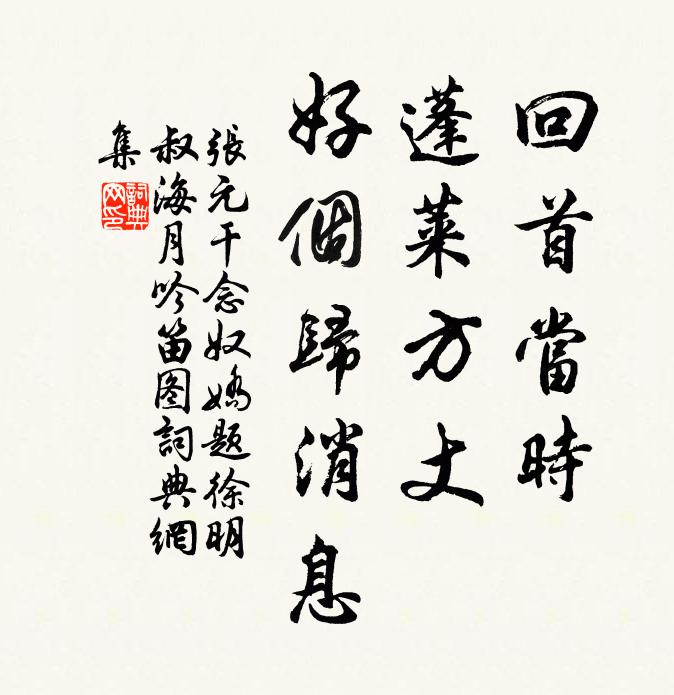 回首當時
蓬萊方丈
好個歸消息
張元干念奴嬌題徐明
叔海月吟笛图詞典網
集
詞典网印